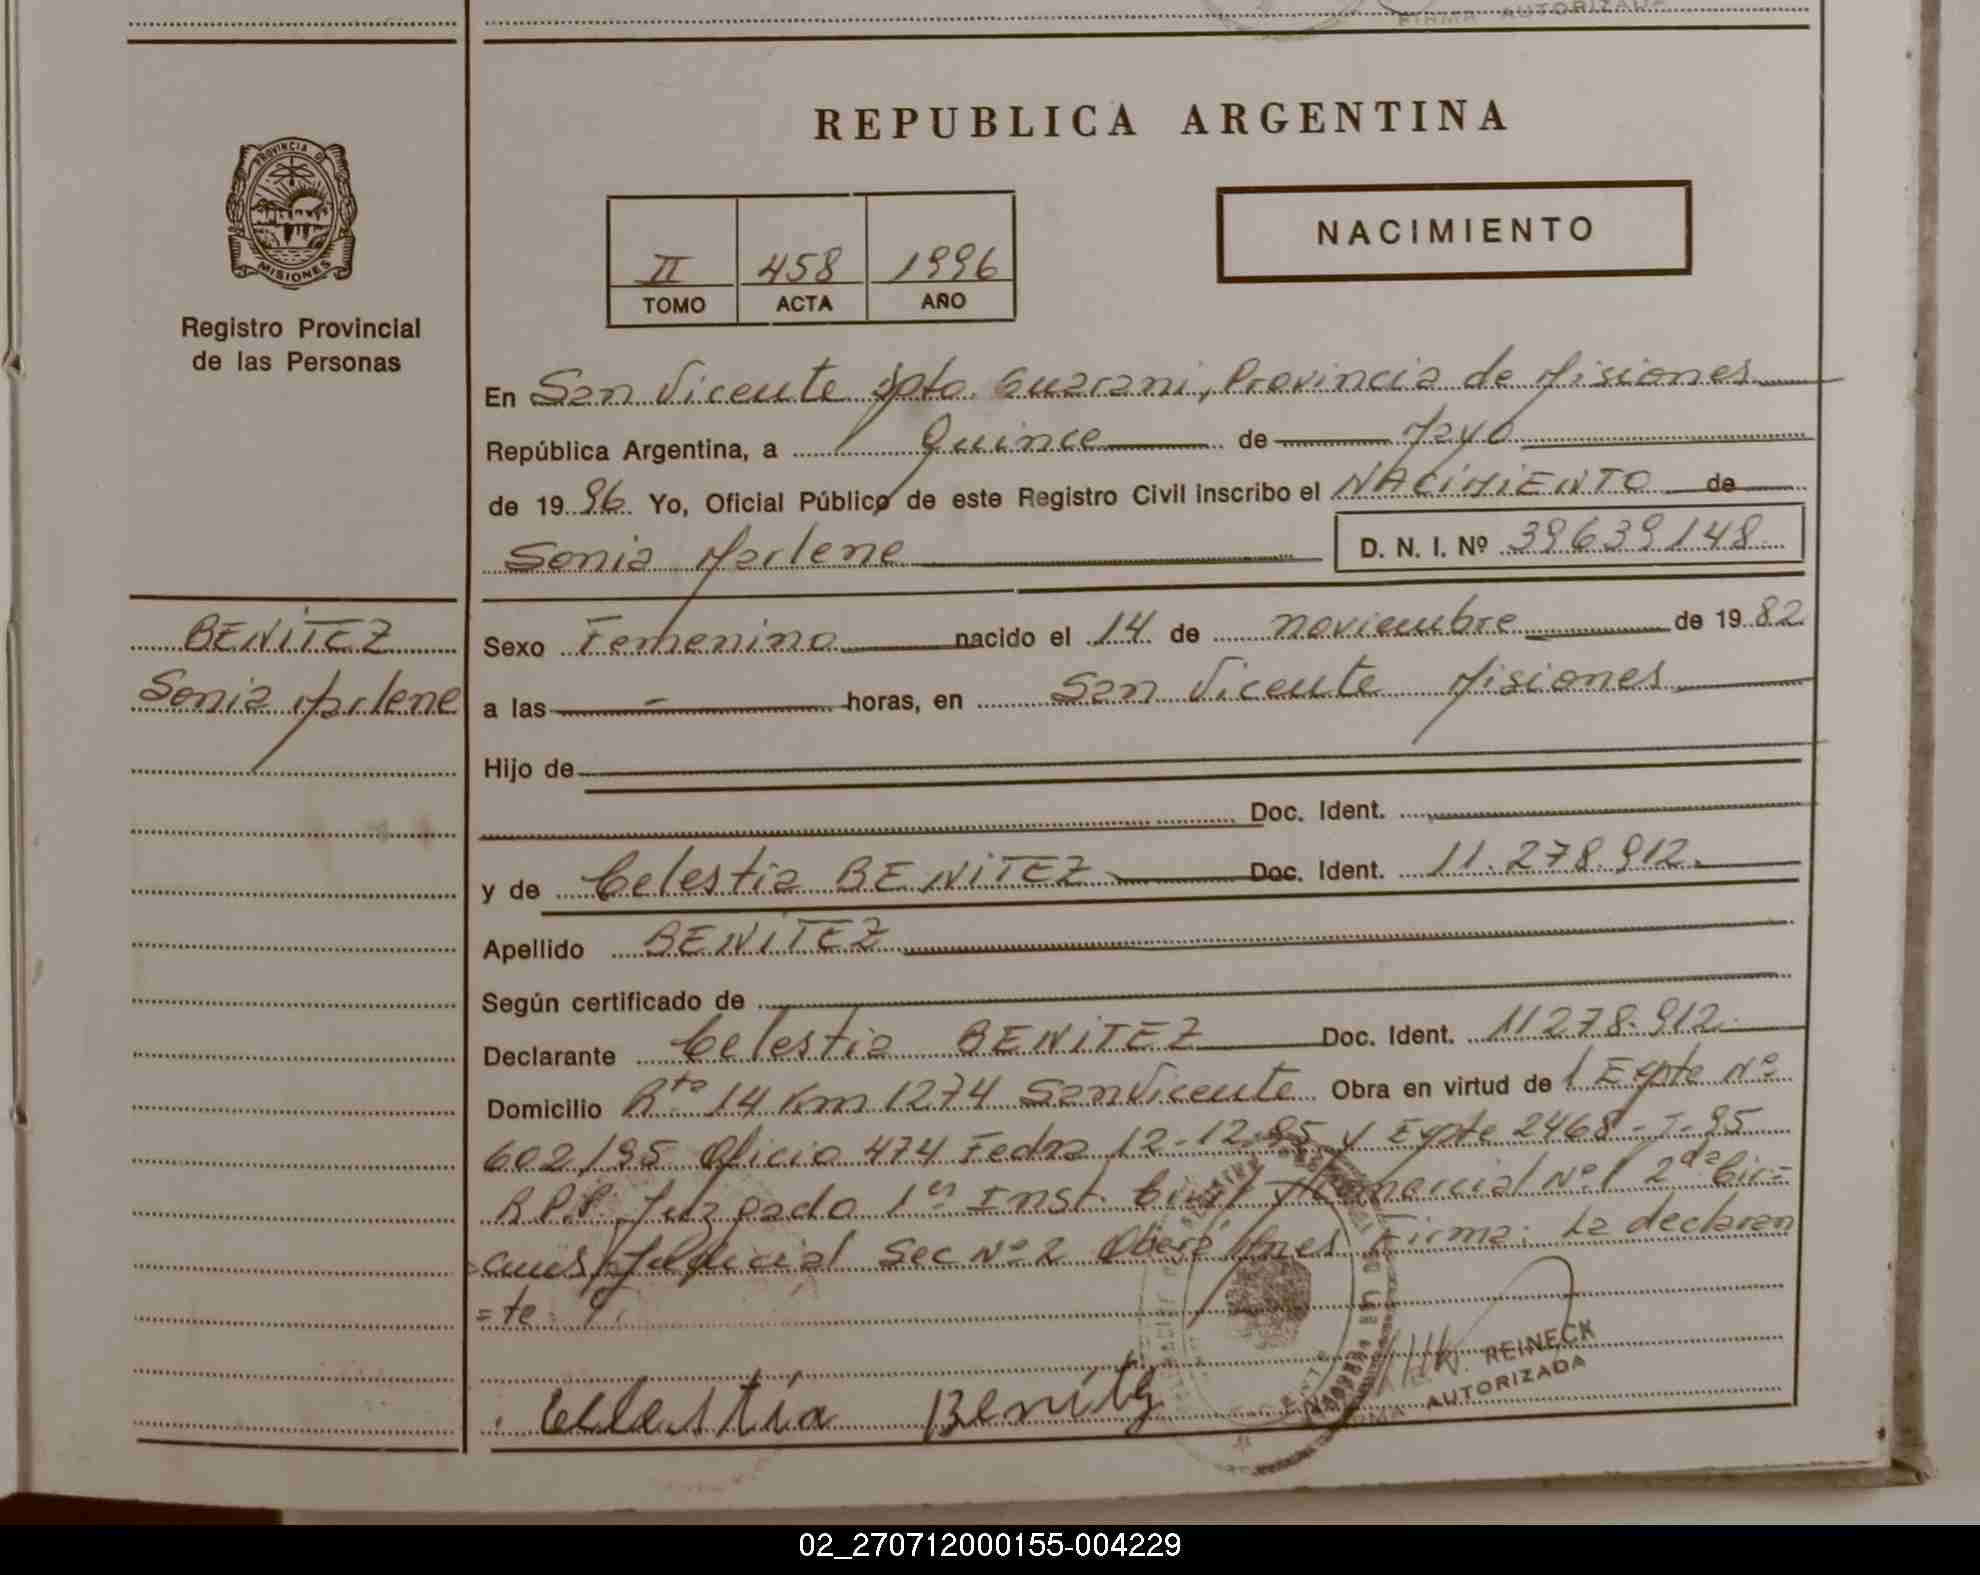 FIRMA AUTORIZADA
REPUBLICA ARGENTINA
PROVINCIA DE
MISIONES
Registro Provincial
de las Personas
NACIMIENTO
II 458 1996
TOMO ACTA AÑO
En San Vicente Dpto. Guarani, Provincia de Misiones
República Argentina, a Quince de Mayo
de 1996 Yo, Oficial Público de este Registro Civil inscribo el NACIMIENTO de
Sonia Marlene D. N. I. Nº 39639148
BENITEZ
Sonia Marlene
Sexo Femenino nacido el 14 de noviembre de 1982
a las - horas, en San Vicente Misiones
Hijo de
Doc. Ident.
y de Celestia BENITEZ Doc. Ident. 11.278.912.
Apellido BENITEZ
Según certificado de
Declarante Celestia BENITEZ Doc. Ident. 11278.912.
Domicilio Rta 14 Km 1274 San Vicente Obra en virtud de Expte Nº
602/95 Oficio 474 Fecha 12-12-95 y Expte 2468-I-95
R.P.P. Juzgado 1er Inst. Civil y Comercial Nº 1 2da Cir=
=cuns Judicial Sec Nº 2 Oberá Mnes Firma: La declaran
=te
Celestia Benitez
REINECK
FIRMA AUTORIZADA
02_270712000155-004229